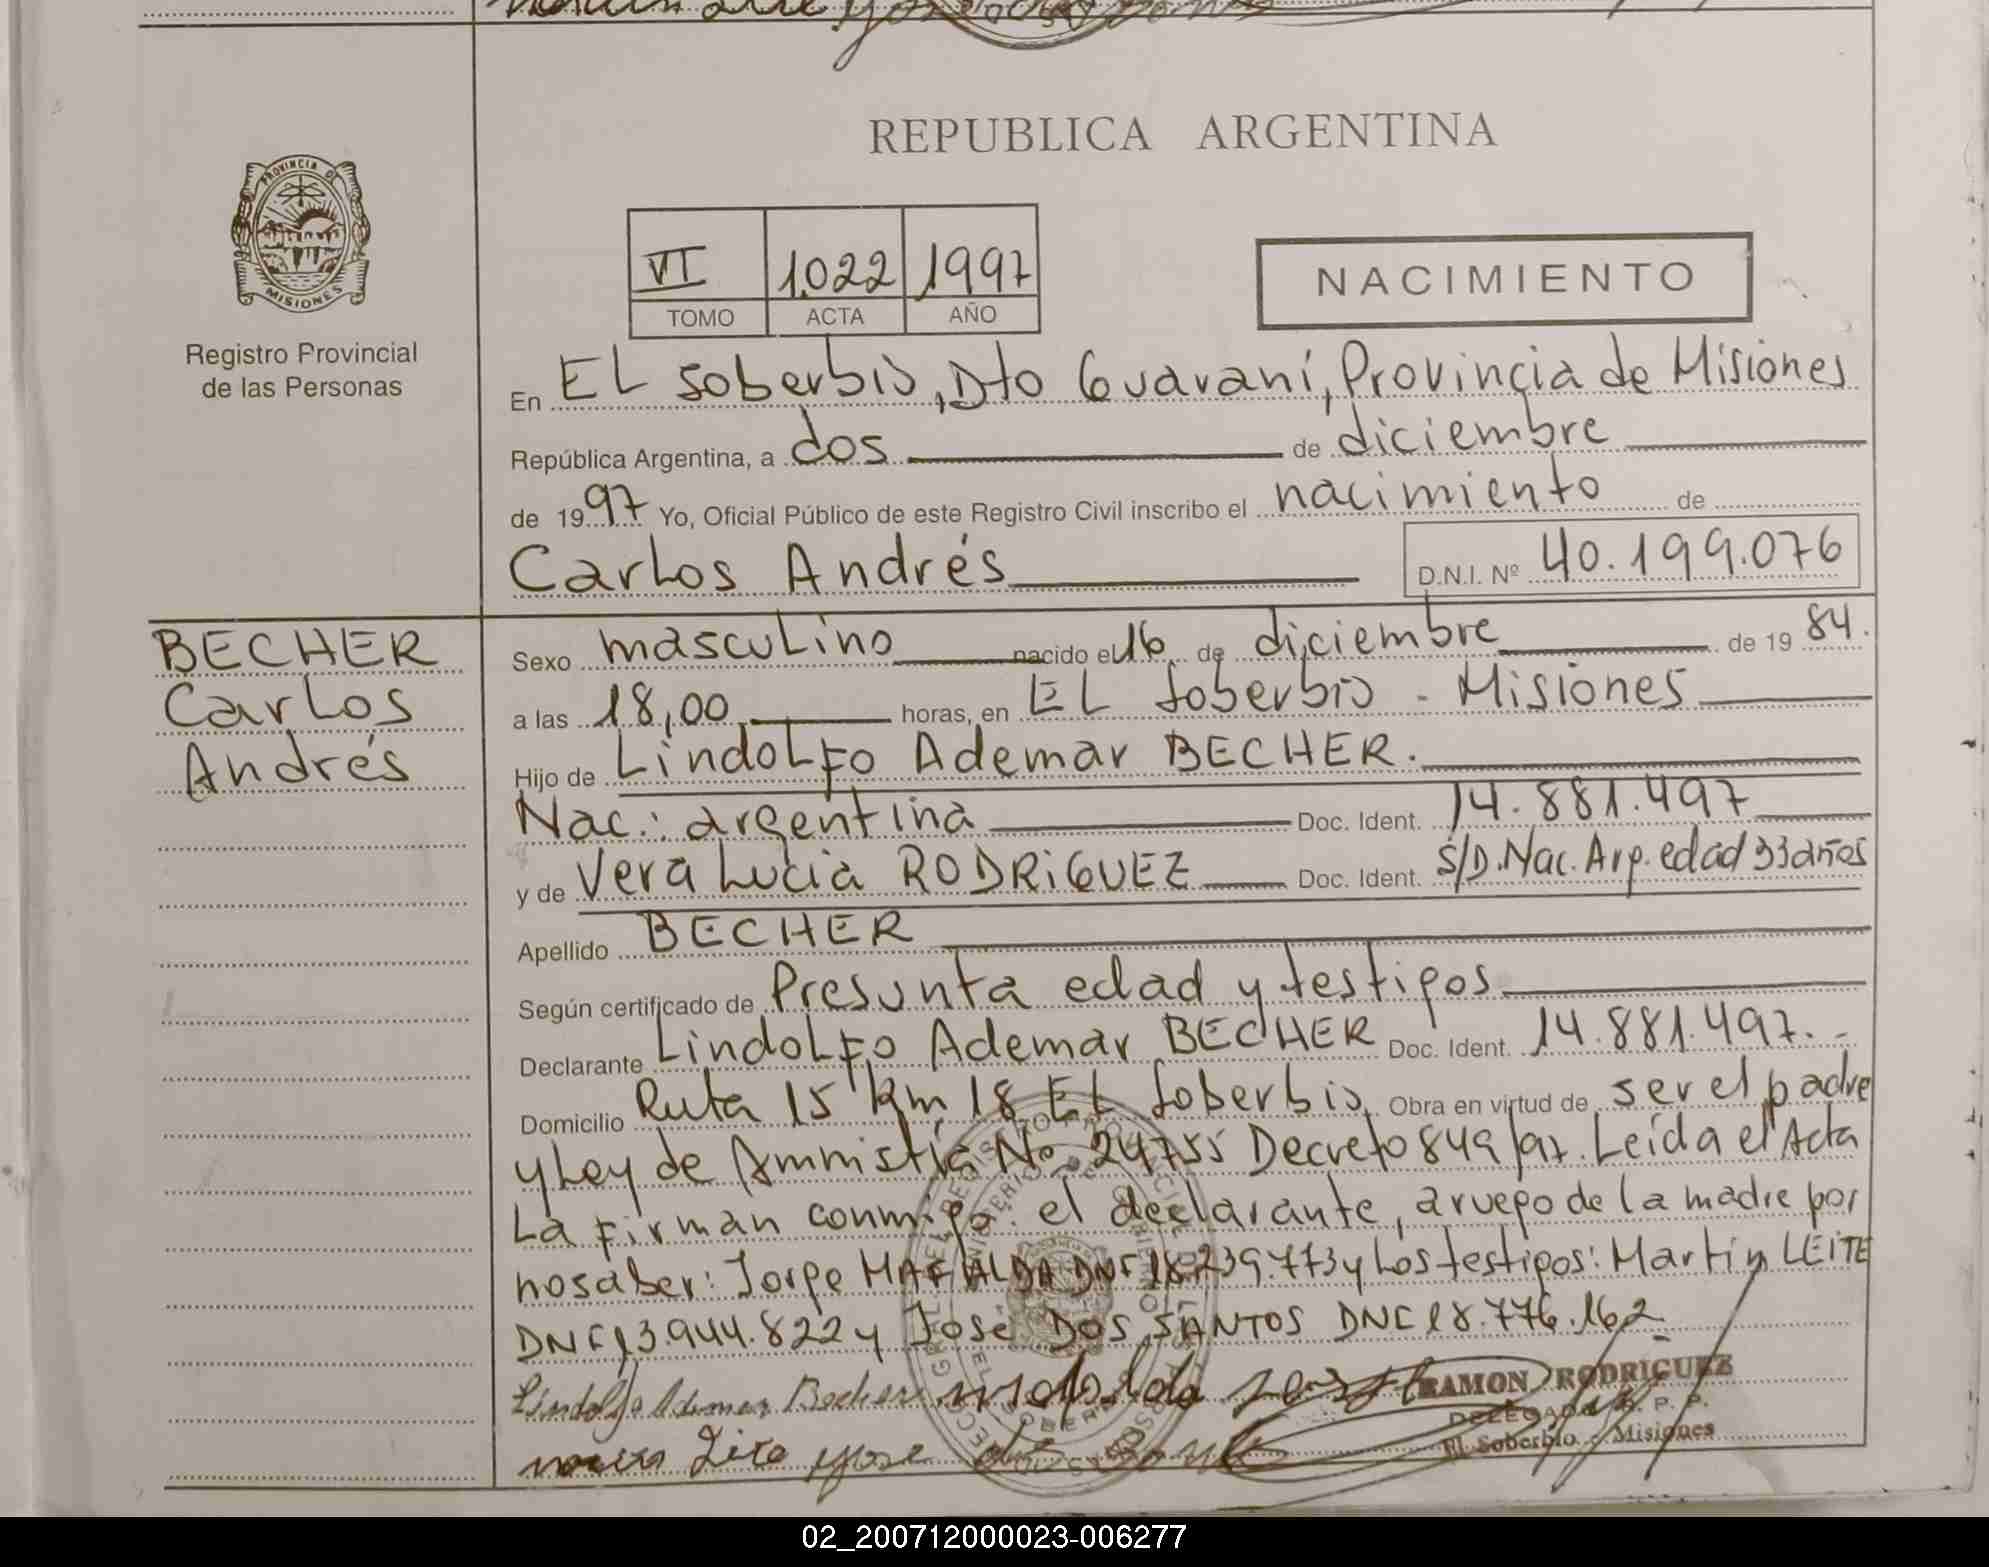 REPUBLICA ARGENTINA
PROVINCIA DE
MISIONES
Registro Provincial
de las Personas
VI 1.022 1997
TOMO ACTA AÑO
NACIMIENTO
En EL Soberbio, Dto Guaraní, Provincia de Misiones
República Argentina, a dos de diciembre
de 1997 Yo, Oficial Público de este Registro Civil inscribo el nacimiento de
Carlos Andrés D.N.I. Nº 40.199.076
BECHER
Carlos
Andrés
Sexo masculino nacido el 16 de diciembre de 1984.
a las 18,00 horas, en EL Soberbio - Misiones
Hijo de Lindolfo Ademar BECHER.
Nac.: argentina Doc. Ident. 14.881.497
y de Vera Lucia RODRIGUEZ Doc. Ident. S/D. Nac. Arg. edad 33 años
Apellido BECHER
Según certificado de Presunta edad y testigos
Declarante Lindolfo Ademar BECHER Doc. Ident. 14.881.497.-
Domicilio Ruta 15 Km 18 EL Soberbio, Obra en virtud de ser el padre
y Ley de Ammistia No 24755 Decreto 849/97. Leída el Acta
La firman conmigo: el declarante, a ruego de la madre por
no saber: Jorge MAFALDA DNI 18.239.773 y Los testigos: Martin LEITE
DNI 13.944.822 y José DOS SANTOS DNI 18.776.162
Lindolfo Ademar Becher
RAMON RODRIGUEZ
DELEGADO R. P. P.
El Soberbio - Misiones
02_200712000023-006277